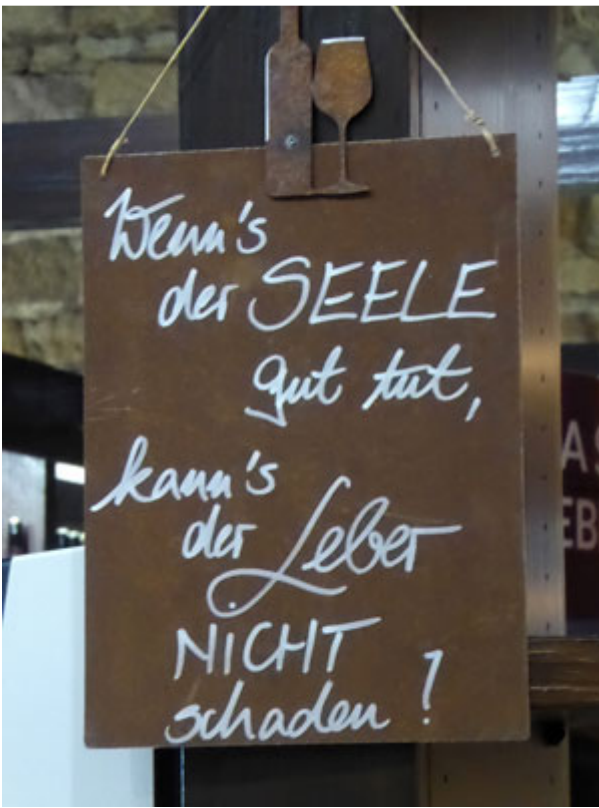 Wenn's
der SEELE
gut tut,
kann's
der Leber
NICHT
schaden!